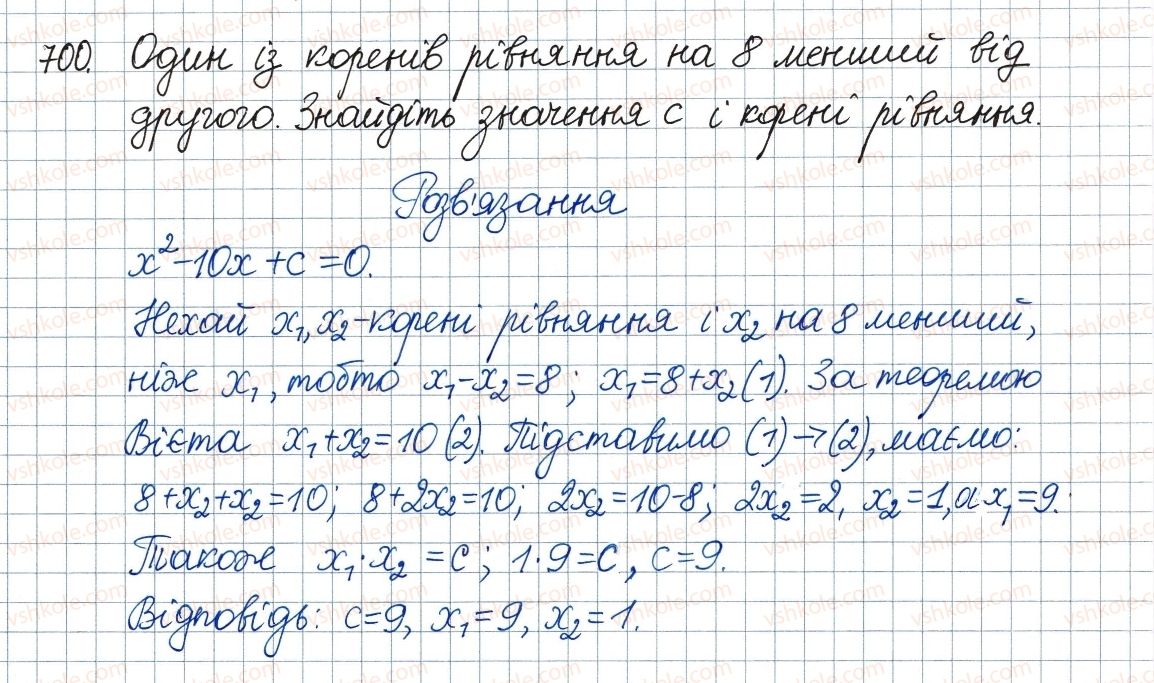 700. Один із коренів рівняння на 8 менший від
другого. Знайдіть значення c і корені рівняння.
Розв'язання
x²-10x+c=0.
Нехай x₁, x₂-корені рівняння і x₂ на 8 менший,
ніж x₁, тобто x₁-x₂=8; x₁=8+x₂(1). За теоремою
Вієта x₁+x₂=10(2). Підставимо (1)→(2), маємо:
8+x₂+x₂=10; 8+2x₂=10; 2x₂=10-8; 2x₂=2, x₂=1, а x₁=9.
Також x₁·x₂=c; 1·9=c, c=9.
Відповідь: c=9, x₁=9, x₂=1.